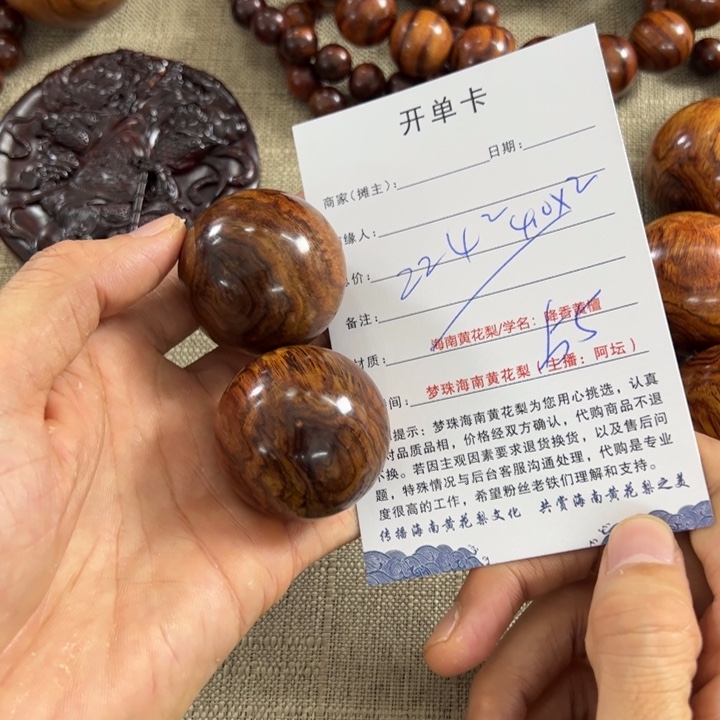 开单卡
商家(摊主):
日期:
缘人:
价:
224² 40x2
备注:
材质:
海南黄花梨/学名:降香黄檀
55
间:
梦珠海南黄花梨(主播:阿坛)
提示:梦珠海南黄花梨为您用心挑选,认真
对品质品相,价格经双方确认,代购商品不退
不换。若因主观因素要求退货换货,以及售后问
题,特殊情况与后台客服沟通处理,代购是专业
度很高的工作,希望粉丝老铁们理解和支持。
传播海南黄花梨文化 共赏海南黄花梨之美